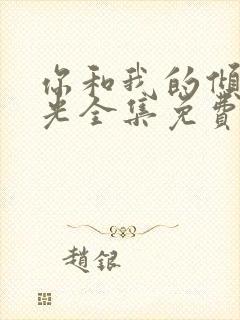 你和我的倾
光全集免费
趙銀